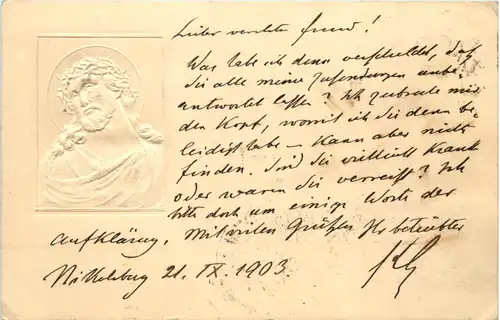 Lieber verehrter Freund!
Was habe ich denn verschuldet, daß
Sie alle meine Zusendungen unbe-
antwortet lassen? Ich zerbreche mir
den Kopf, womit ich Sie denn be-
leidigt habe – kann aber nichts
finden. Sind Sie vielleicht krank
oder waren Sie verreist? Ich
bitte doch um einige Worte der
Aufklärung. Mit vielen Grüßen Ihr betrübter
Nikolsburg 21. IX. 1903